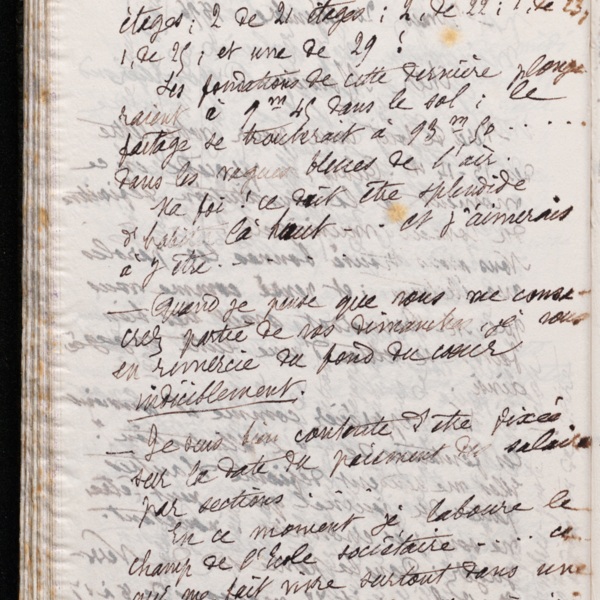 étages ; 2 de 21 étages ; 2 de 22 ; 1, de 23 ;
1, de 25 ; et une de 29 !
Les fondations de cette dernière plonge
raient à 9 m 45 dans le sol ; le
faitage se trouverait à 93 m 50 . . . .
dans les vagues bleues de l'air.
Ma foi ! ce doit être splendide
d'habiter là haut - - et j'aimerais
à y être. -
— Quand je pense que vous me consa-
crez partie de vos dimanches, je vous
en remercie du fond du cœur
indiciblement.
— Je suis bien contente d'être fixée
sur la date du paiement du salaire
par sections.
En ce moment je laboure le
champ de l'École sociétaire - . . . ce
qui me fait vivre surtout dans une